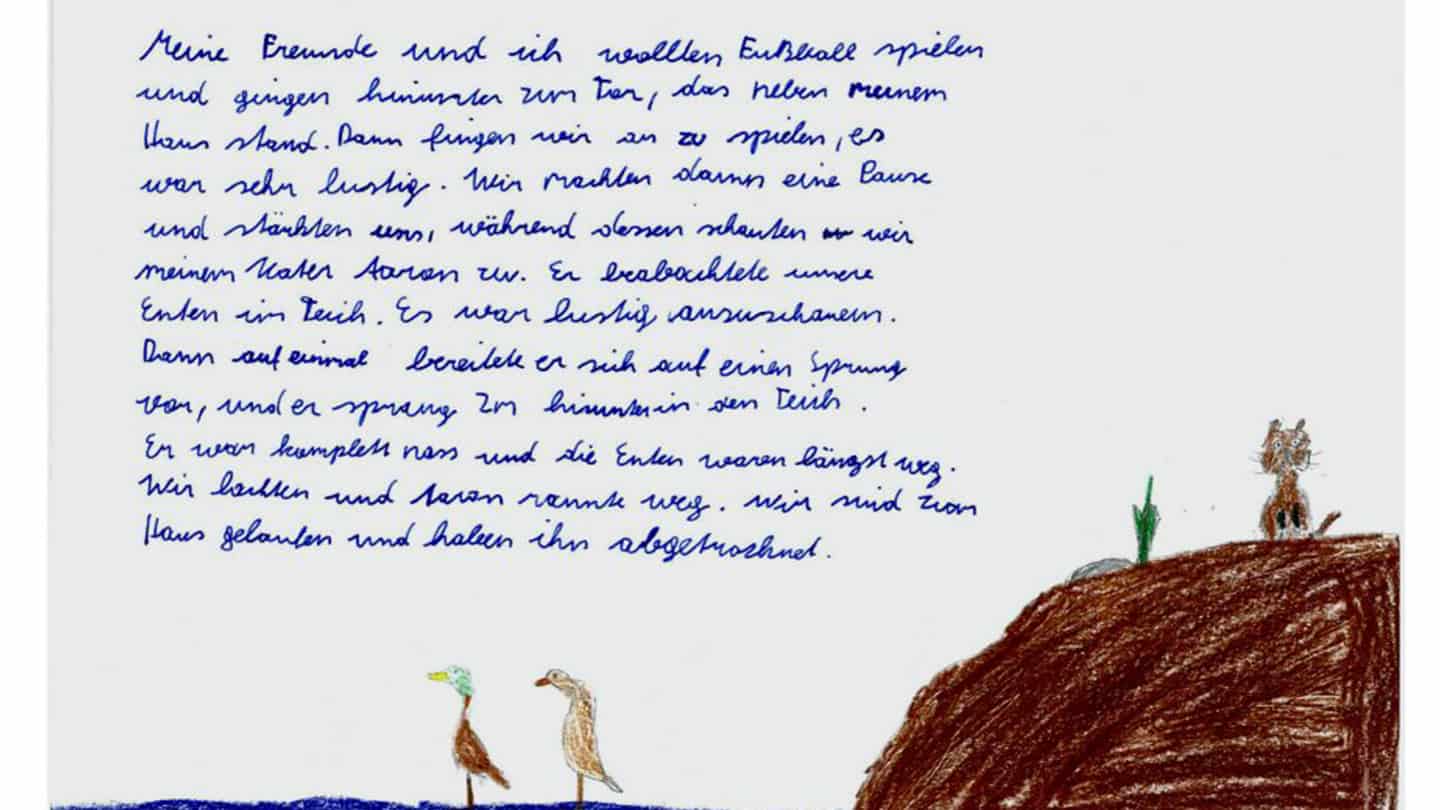 Meine Freunde und ich wollten Fußball spielen
und gingen hinunter zum Tor, das neben meinem
Haus stand. Dann fingen wir an zu spielen, es
war sehr lustig. Wir machten dann eine Pause
und stärkten uns, während dessen schauten wir
meinem Kater Aaron zu. Er beobachtete unsere
Enten im Teich. Es war lustig anzuschauen.
Dann auf einmal bereitete er sich auf einen Sprung
vor, und er sprang hinunter in den Teich.
Er war komplett nass und die Enten waren längst weg.
Wir lachten und Aaron rannte weg. Wir sind zum
Haus gelaufen und haben ihn abgetrocknet.